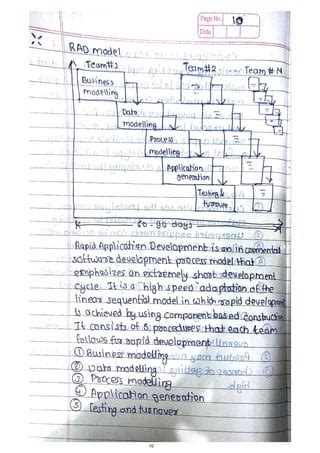 Page No. 10
Date
RAD model
Team#1 Team#2 Team # N
Business
modelling
Data
modelling
Process
modelling
Application
generation
Testing &
turnover
60-90 days
Rapid Application Development is an incremental
software development process model that
emphasizes an extremely short development
cycle. It is a "high speed" adaptation of the
linear sequential model in which rapid development
is achieved by using component based construction
It consists of 5 procedures that each team
follows for rapid development
① Business modelling
② Data modelling
③ Process modelling
④ Application generation
⑤ Testing and turnover